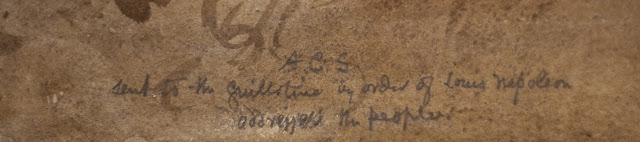 A C S
sent to the Guillotine by order of Louis Napoleon
addresses the people